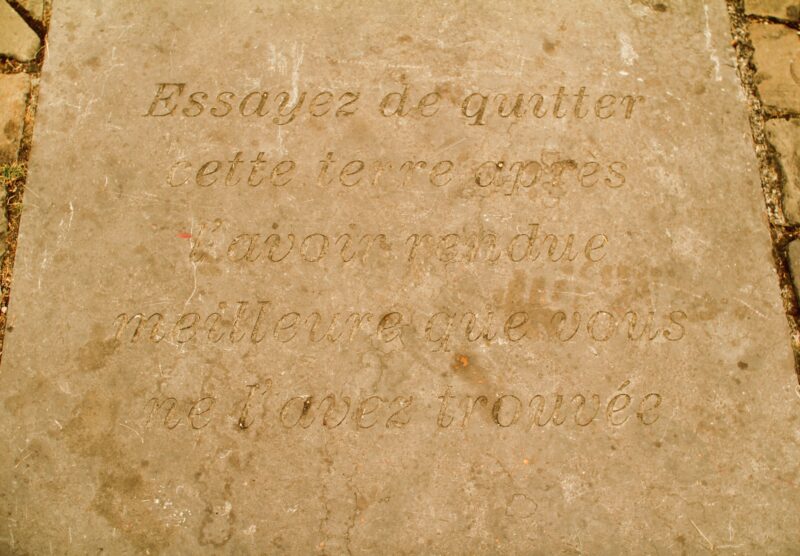 Essayez de quitter
cette terre après
l'avoir rendue
meilleure que vous
ne l'avez trouvée